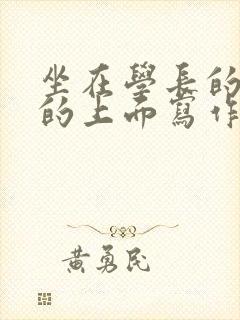 坐在學長的
的上而寫作
黃勇民